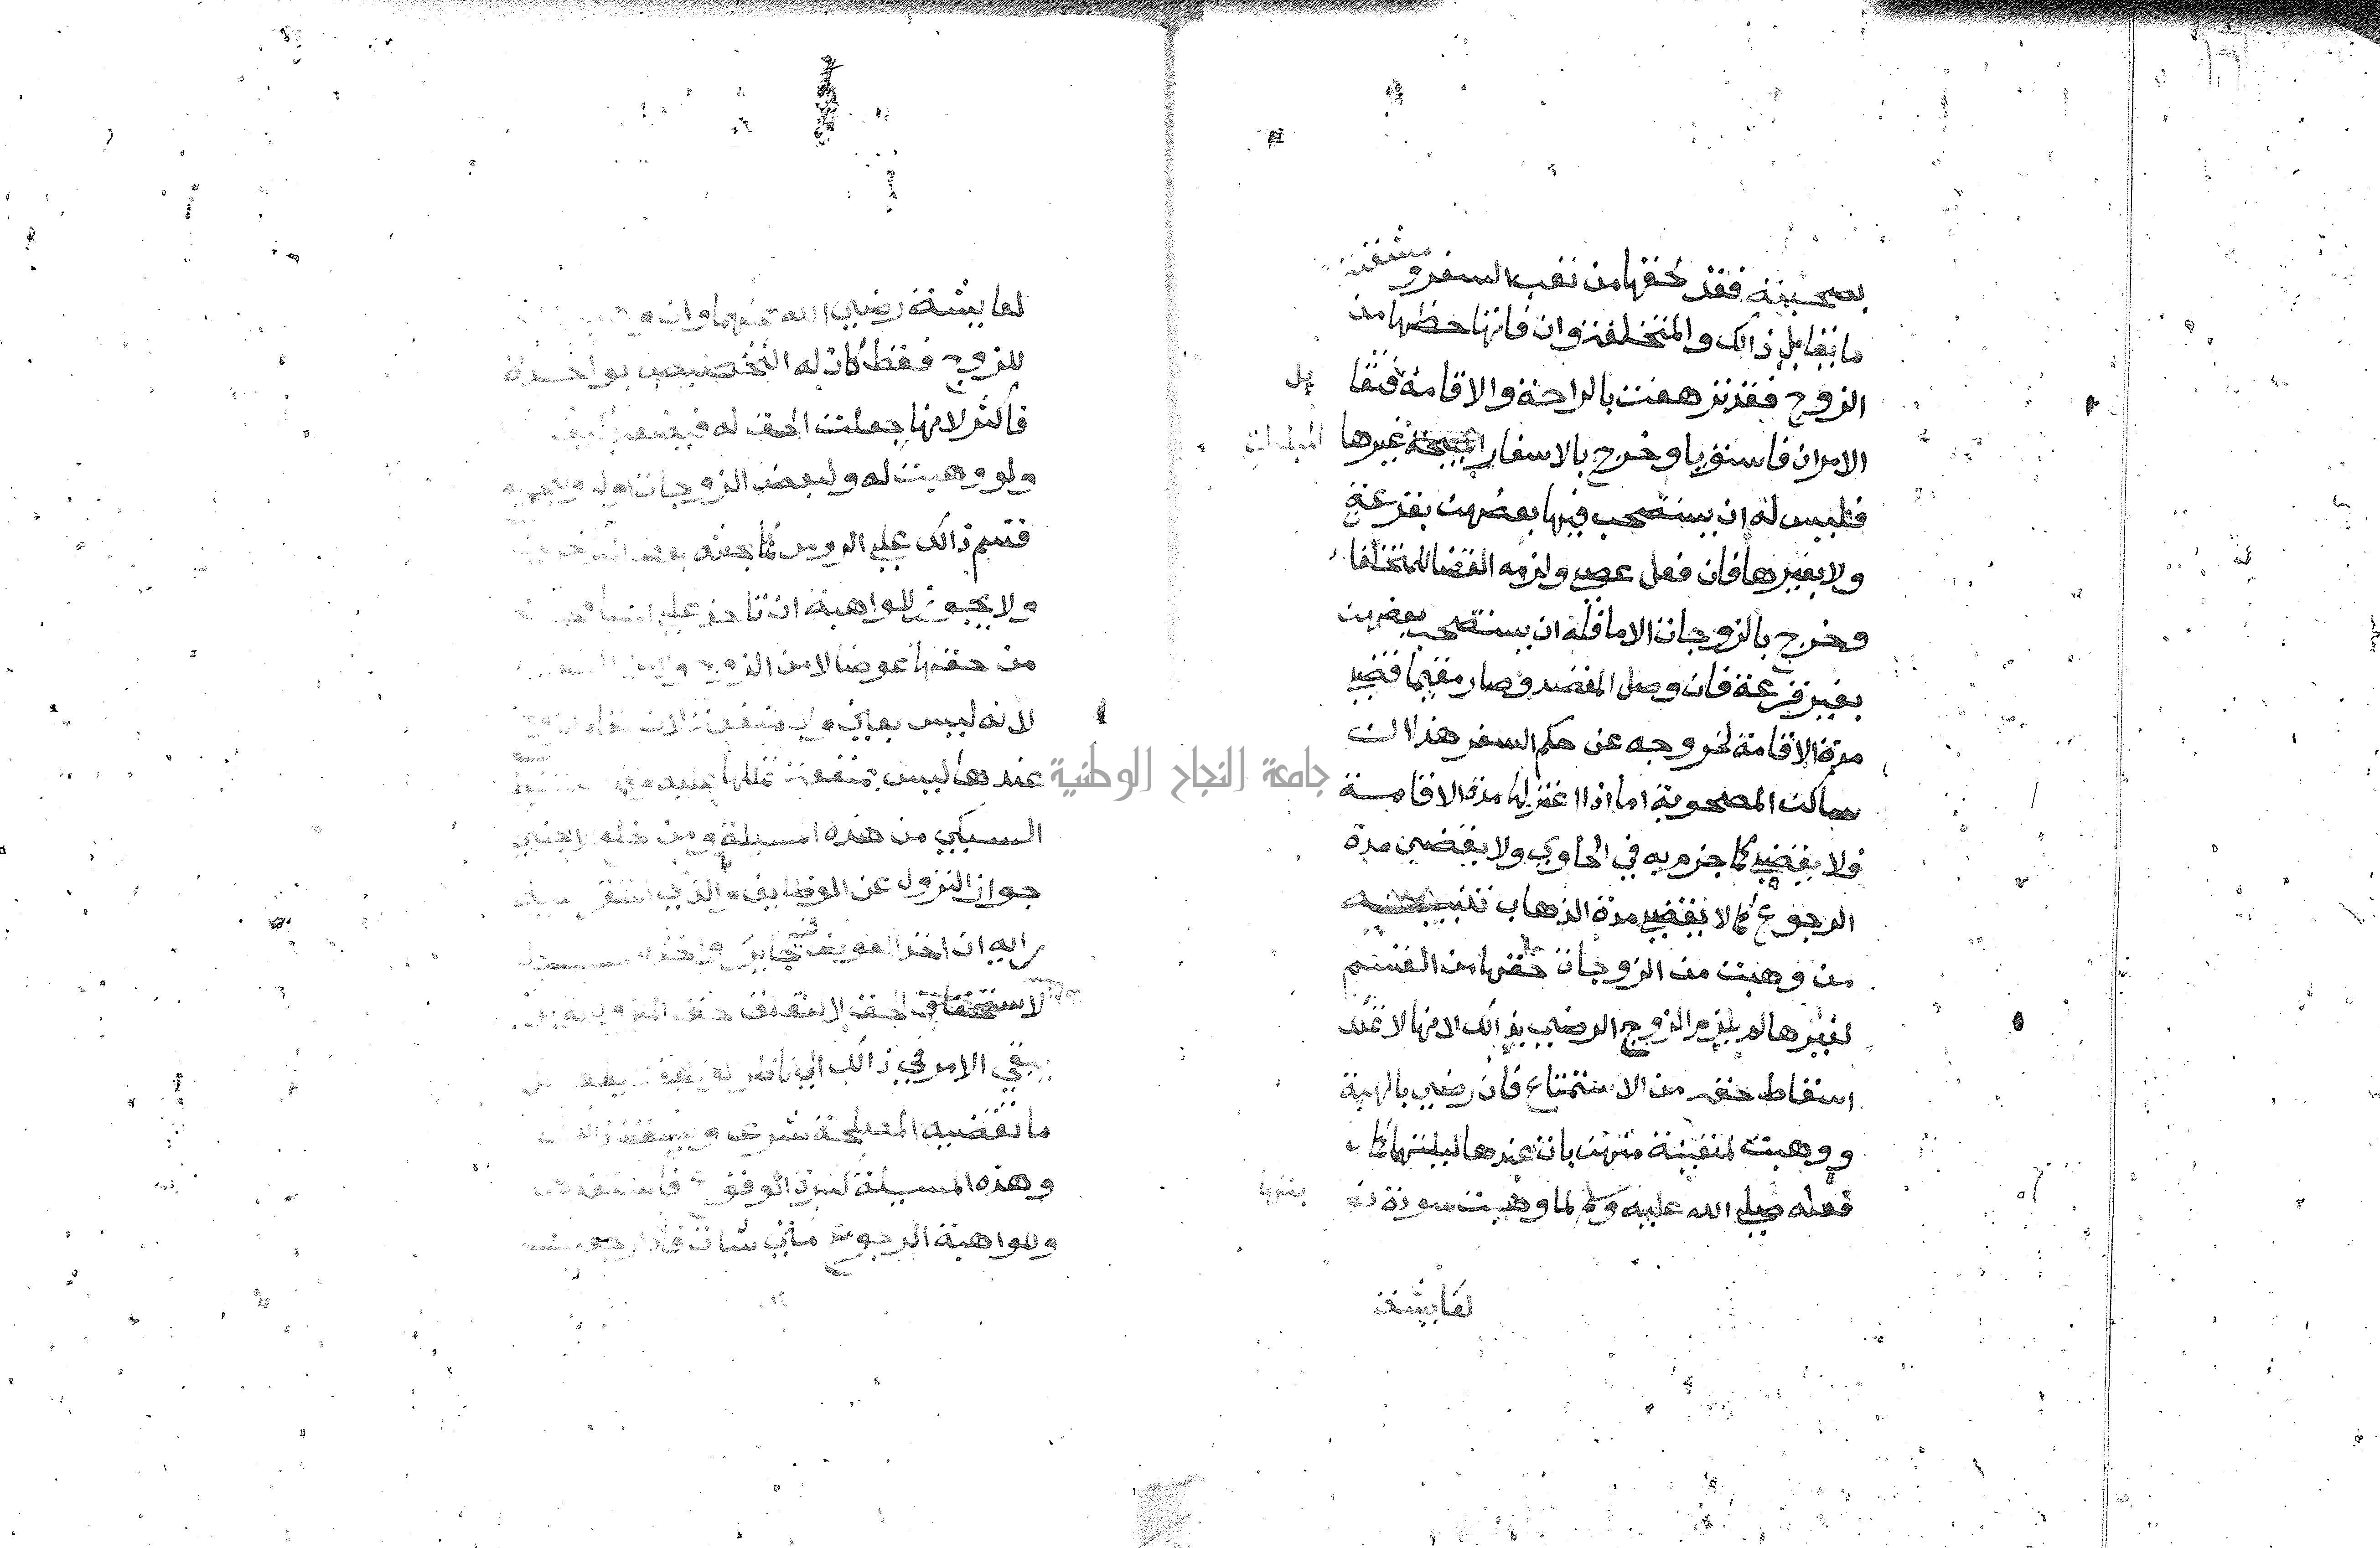 بصحبته فقد لحقها من تعب السفر ومشقته
ما يقابل ذالك والمتخلفة وان فاتها حظها من
الزوج فقد ترفهت بالراحة والاقامة فتقابل
الامران فاستويا وخرج بالاسفار المبيحة غيرها
فليس له ان يستصحب فيها بعضهن بقرعة
ولا بغيرها فان فعل عصى ولزمه القضا للمتخلفا
وخرج بالزوجات الاما فله ان يستصحب بعضهن
بغير قرعة فان وصل المقصد وصار مقيما قضى
مدة الاقامة لخروجه عن حكم السفر هذا ان
ساكن المصحوبة اما اذا اعتزلها مدة الاقامة
فلا يقضي كما جزم به في الحاوي ولا يقضي مدة
الرجوع كما لا يقضي مدة الذهاب تنبيه
من وهبت من الزوجات حقها من القسم
لغيرها لم يلزم الزوج الرضي بذالك لانها لا تملك
اسقاط حقه من الاستمتاع فان رضي بالهبة
ووهبت لمعينة منهن بات عندها ليلتهما كما
فعله صلى الله عليه وسلم لما وهبت سودة نوبتها
لعايشة
لعايشة رضي الله عنهما وان
للزوج فقط كان له التخصيص بواحدة
فاكثر لانها جعلت الحق له فيضعه
ولو وهبت له ولبعض الزوجات
قسم ذالك على الروس كما بحثه بعض
ولا يجوز للواهبة ان تاخذ على
من حقها عوضا لا من الزوج ولا من
لانه ليس بعين ولا منفعة لان مقام الزوج
عندها ليس بمنفعة تملكها
السبكي من هذه المسيلة ومن خلع الاجنبي
جواز النزول عن الوظايف والذي استقر عليه
رايه ان اخذ العوض فيه جايز واخذه
لاسقاط الحق لا لتعلق حق المنزول له
يبقي الامر في ذالك الى ناظر الوظيفة يفعل
ما تقتضيه المصلحة شرعا
وهذه المسيلة كثيرة الوقوع
وللواهبة الرجوع متى شات
جامعة النجاح الوطنية